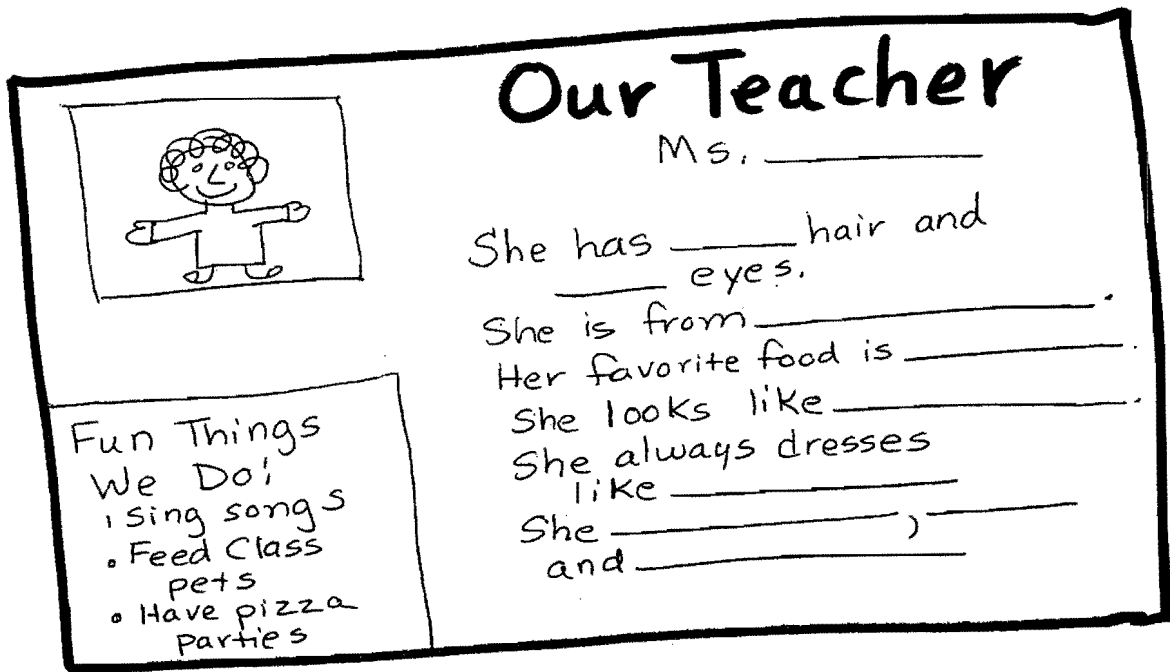 Our Teacher
Ms. ________
She has _____ hair and
_____ eyes.
She is from ______________.
Her favorite food is _________.
She looks like ____________.
She always dresses
like ____________
She ____________, ______
and ______________
Fun Things
We Do:
• Sing songs
• Feed Class
pets
• Have pizza
parties